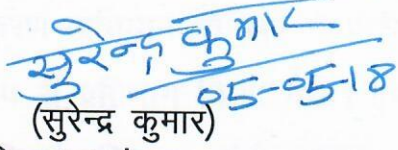 सुरेन्द्र कुमार
05-05-18
(सुरेन्द्र कुमार)